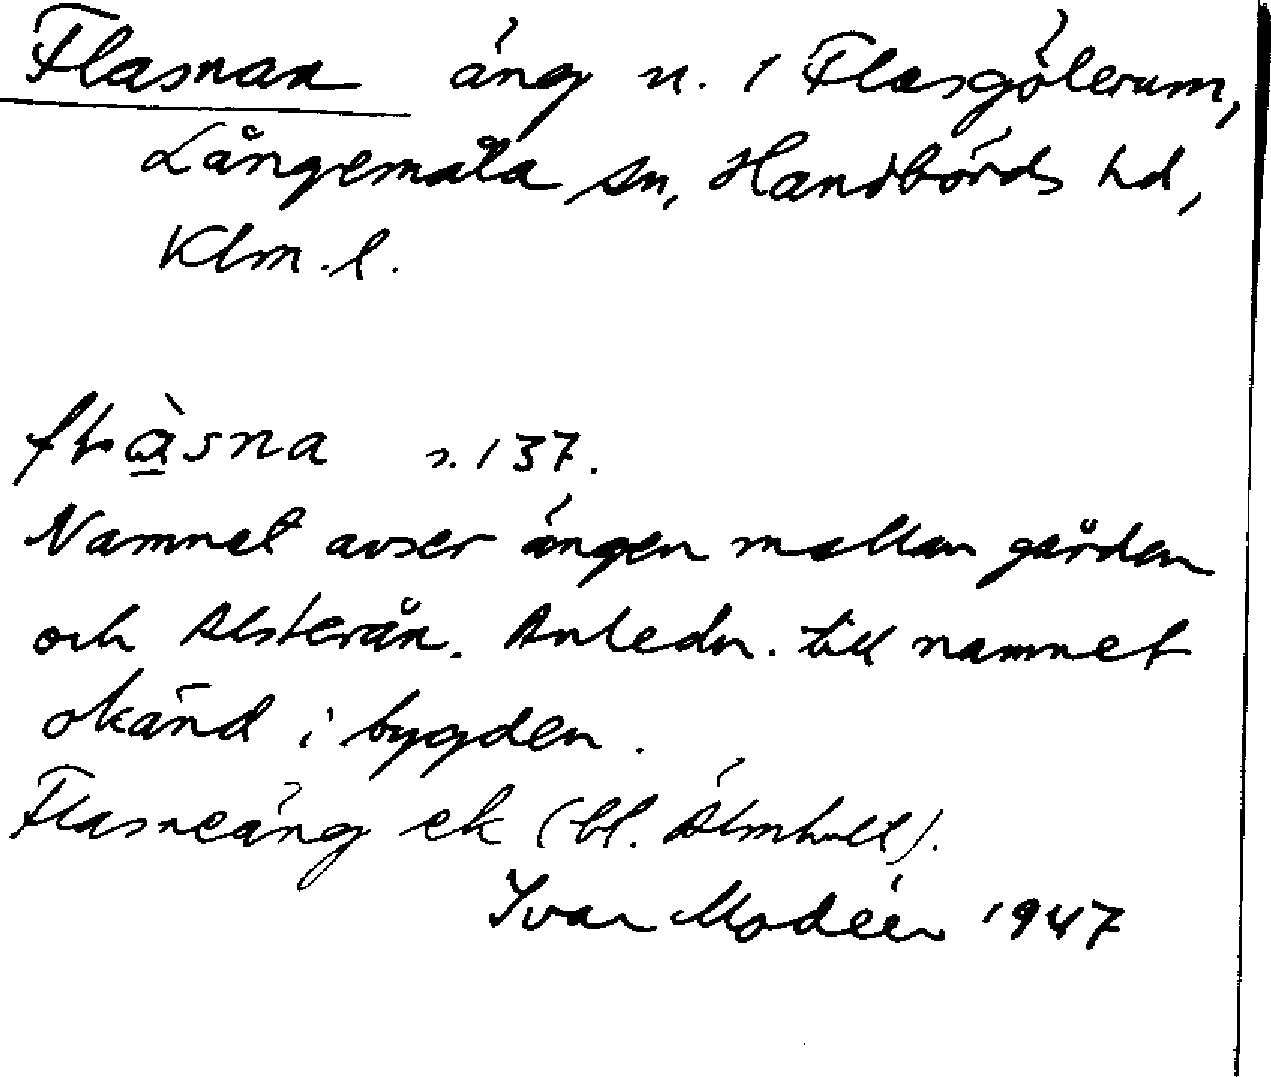 Flasnan äng n. i Flasgölerum,
Långemåla sn, Handbörds hd,
Klm. l.
flàsna s. 137.
Namnet avser ängen mellan gården
och Alsterån. Anledn. till namnet
okänd i bygden.
Flasneäng ek (bl. Älmhult).
Ivar Modéer 1947